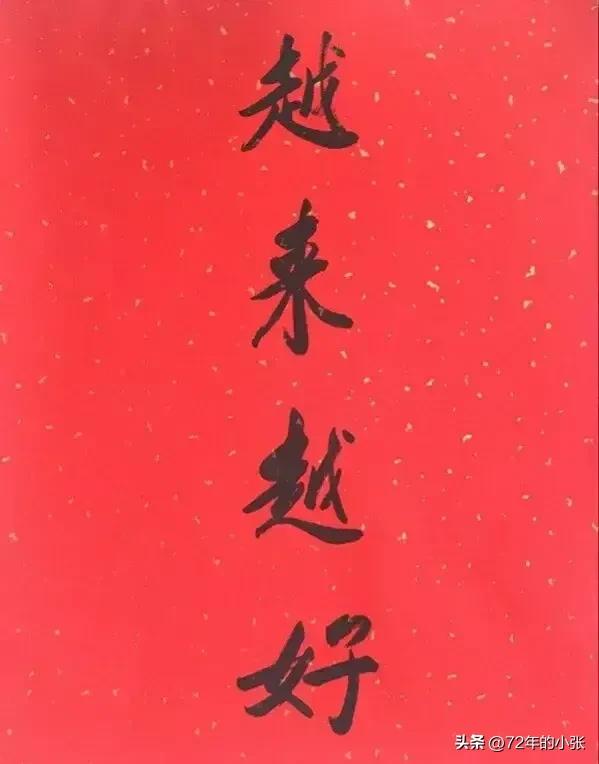 越来越好
头条 @72年的小张